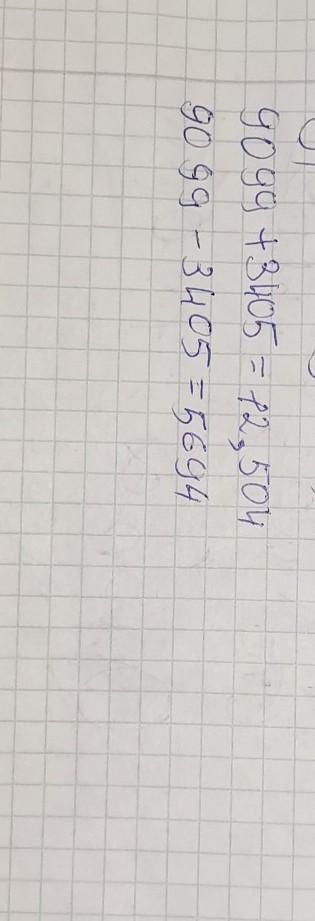 9099 + 3405 = 12,504
9099 - 3405 = 5694